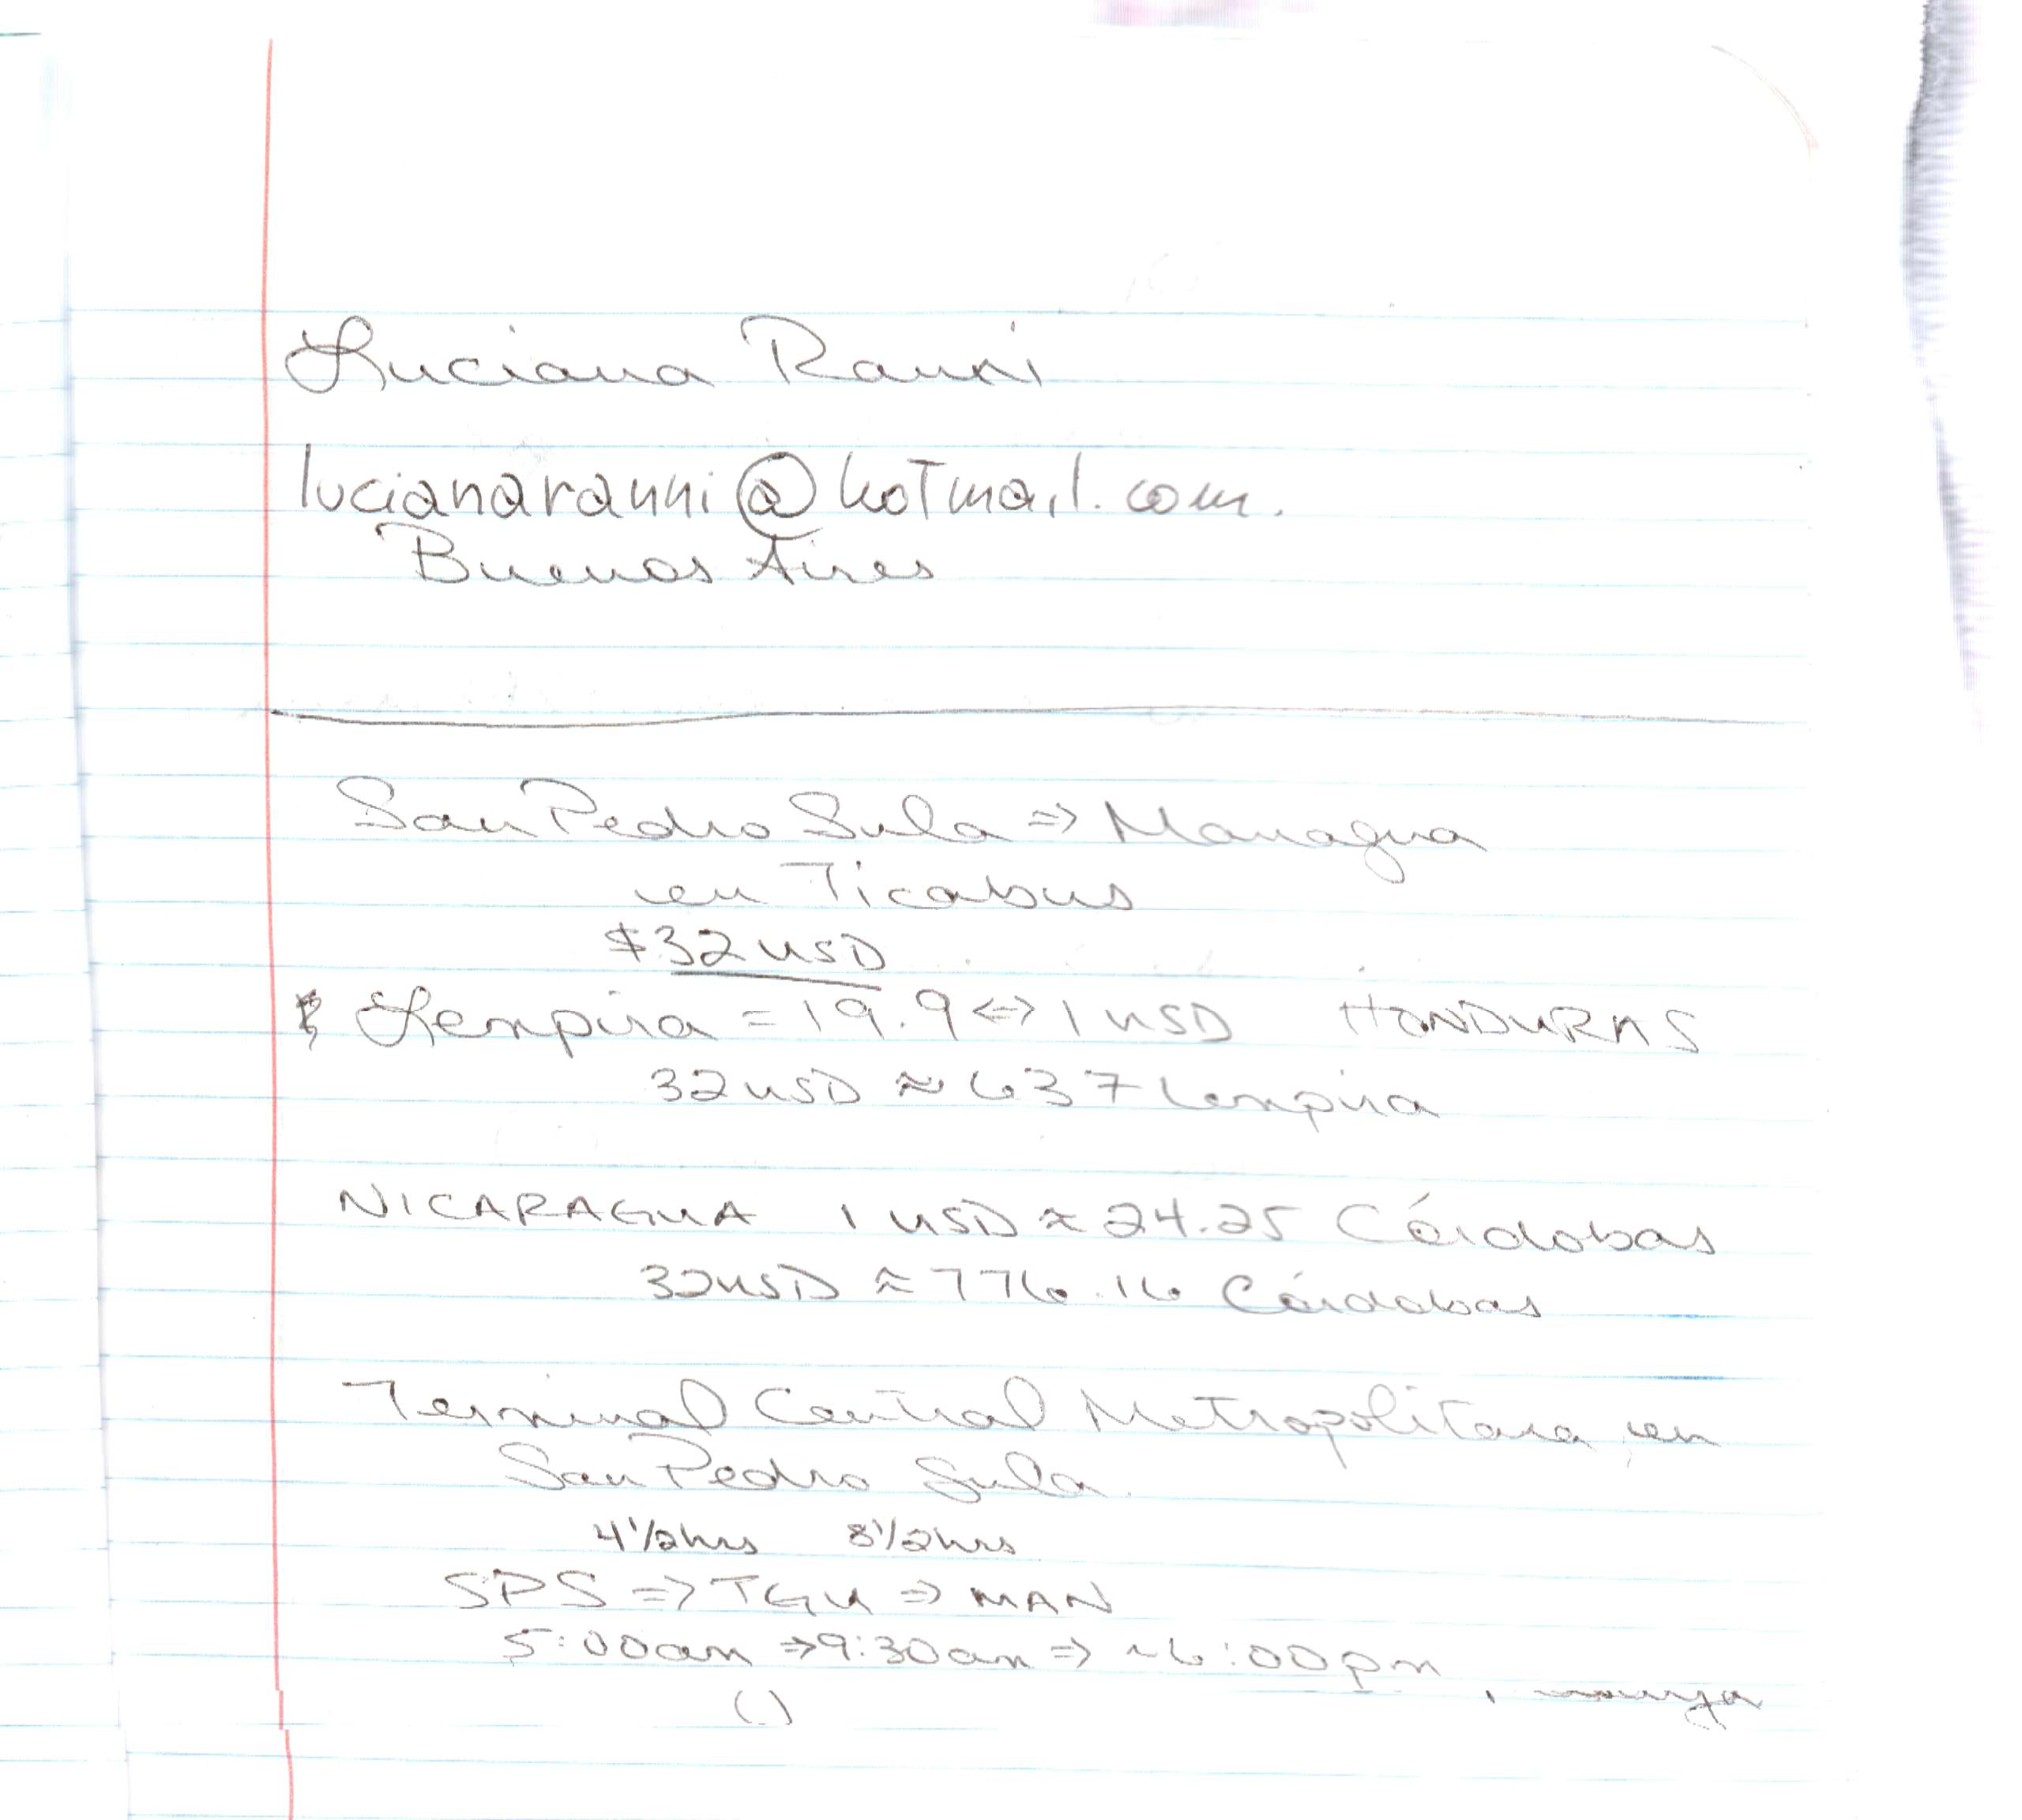 Luciana Ranni
lucianaranni@hotmail.com.
Buenos Aires
San Pedro Sula => Managua
en Ticabus
$32 USD
Lempira = 19.9 <=> 1 USD HONDURAS
32 USD ≈ 637 Lempira
NICARAGUA 1 USD ≈ 24.25 Córdobas
32 USD ≈ 776.16 Córdobas
Terminal Central Metropolitana, en
San Pedro Sula.
4 1/2 hrs 8 1/2 hrs
SPS => TGU => MAN
5:00am => 9:30am => ~6:00pm